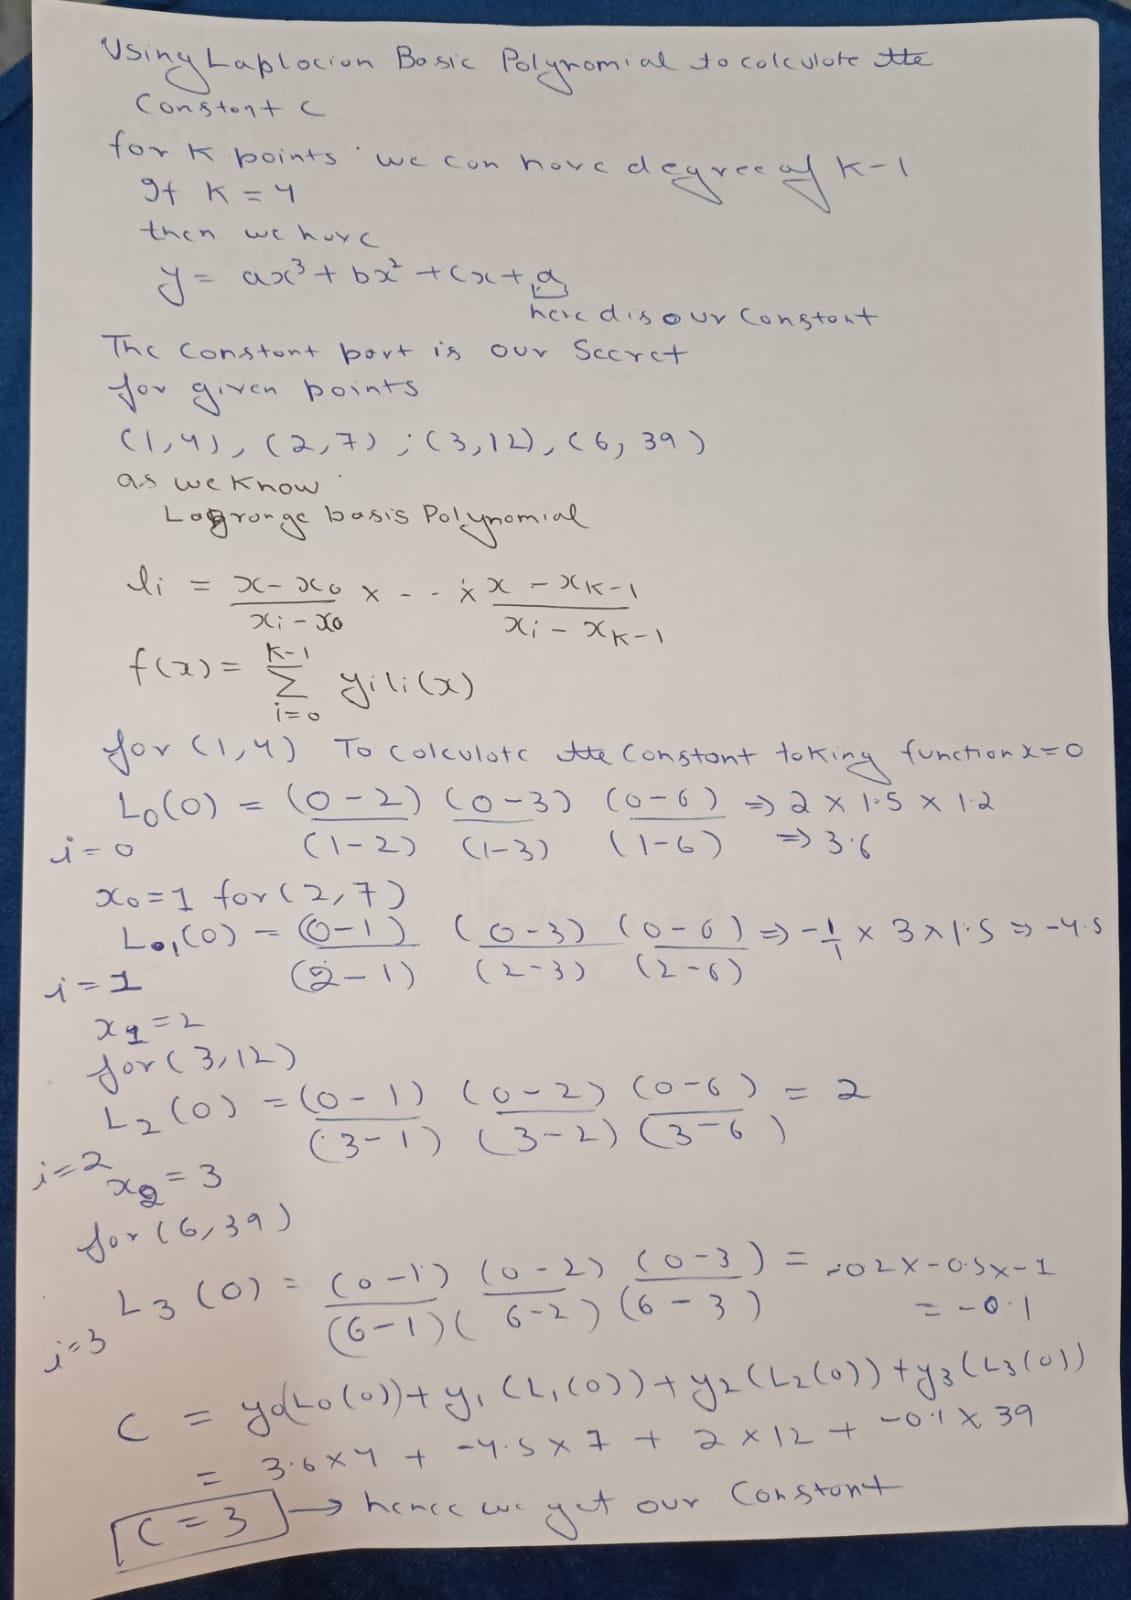 Using Laplocion Basic Polynomial to calculate the
Constant C
for K points we can have degree of K-1
If K = 4
then we have
y = ax³ + bx² + cx + d
here d is our Constant
The Constant part is our Secret
for given points
(1,4), (2,7), (3,12), (6, 39)
as we Know
Lagrange basis Polynomial
li = (x - x0)/(xi - x0) x - - x (x - xK-1)/(xi - xK-1)
f(x) = K-1 Σ i=0 yi li(x)
for (1,4) To calculate the Constant taking function x=0
L0(0) = (0-2)/(1-2) (0-3)/(1-3) (0-6)/(1-6) ⇒ 2 x 1.5 x 1.2
i=0 ⇒ 3.6
x0=1 for (2,7)
L1(0) = (0-1)/(2-1) (0-3)/(2-3) (0-6)/(2-6) ⇒ -1/1 x 3 x 1.5 ⇒ -4.5
i=1
x1=2
for (3,12)
L2(0) = (0-1)/(3-1) (0-2)/(3-2) (0-6)/(3-6) = 2
i=2
x2=3
for (6,39)
L3(0) = (0-1)/(6-1) (0-2)/(6-2) (0-3)/(6-3) = -02x-0.5x-1
i=3 = -0.1
C = y0(L0(0)) + y1(L1(0)) + y2(L2(0)) + y3(L3(0))
= 3.6 x 4 + -4.5 x 7 + 2 x 12 + -0.1 x 39
C = 3 → hence we get our Constant